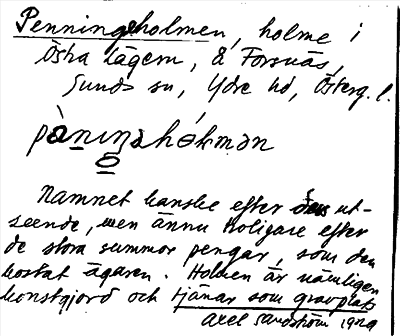 Penningeholmen, holme i
Östra Lägern, å Forsnäs,
Sunds sn, Ydre hd, Österg. l.
pàniŋəhólmən
Namnet kanske efter dess ut-
seende, men ännu troligare efter
de stora summor pengar, som den
kostat ägaren. Holmen är nämligen
konstgjord och tjänar som gravplats
Axel Sandström 1929